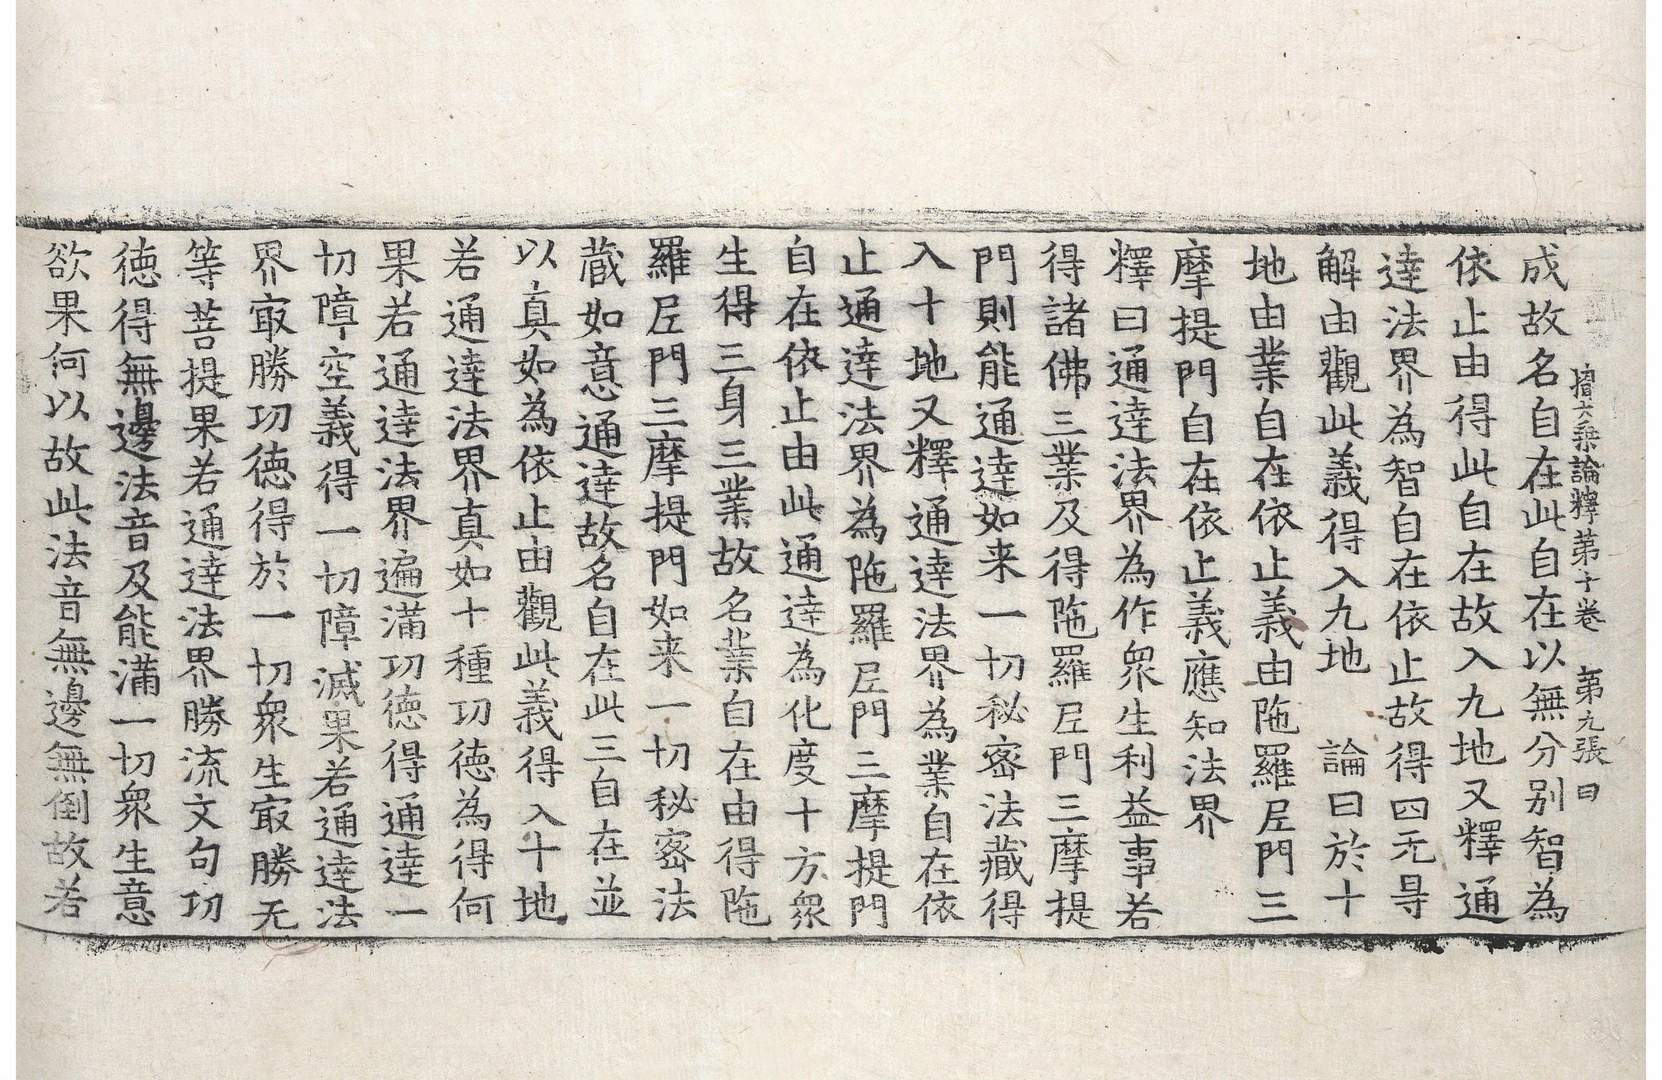 攝大乗論釋苐十卷　苐九張　曰
成故名自在此自在以無分别智為
依止由得此自在故入九地又釋通
達法界為智自在依止故得四无㝵
解由觀此義得入九地　論曰於十
地由業自在依止義由陁羅尼門三
摩提門自在依止義應知法界
釋曰通達法界為作衆生利益事若
得諸佛三業及得陁羅尼門三摩提
門則能通達如来一切秘密法藏得
入十地又釋通達法界為業自在依
止通達法界為陁羅尼門三摩提門
自在依止由此通達為化度十方衆
生得三身三業故名業自在由得陁
羅尼門三摩提門如来一切秘密法
藏如意通達故名自在此三自在並
以真如為依止由觀此義得入十地
若通達法界真如十種功徳為得何
果若通達法界遍滿功徳得通達一
切障空義得一切障滅果若通達法
界㝡勝功徳得於一切衆生㝡勝无
等菩提果若通達法界勝流文句功
徳得無邊法音及能滿一切衆生意
欲果何以故此法音無邊無倒故若